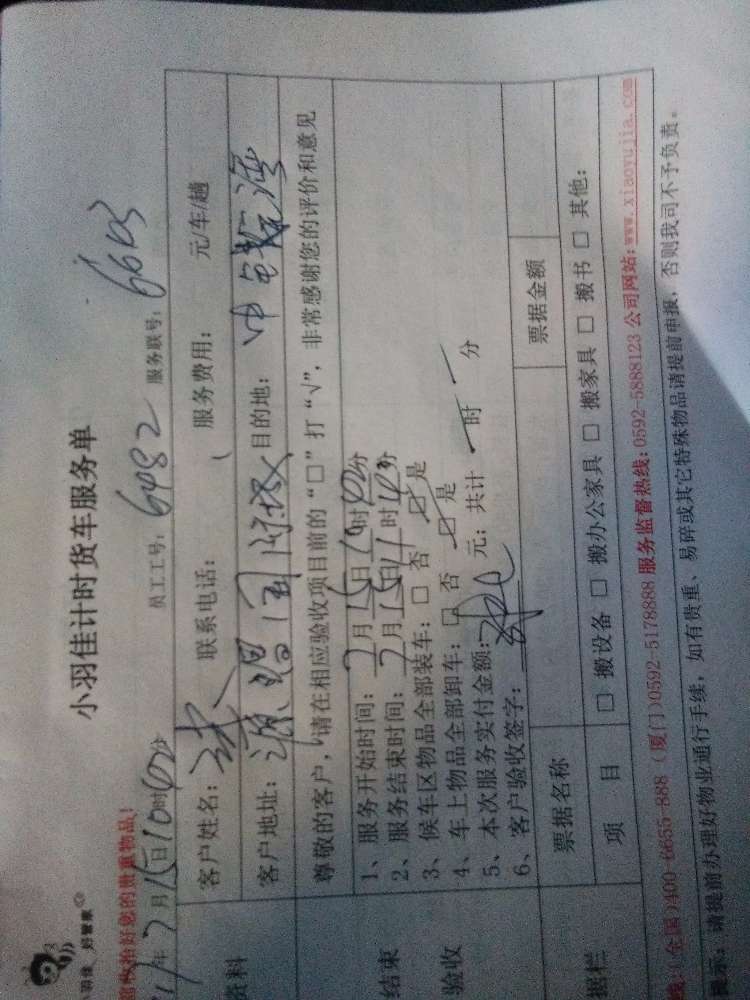 小羽佳计时货车服务单
好管家
好您的贵重物品！
年7月15日10时40分 员工工号：6982 服务联号：6603
资料
客户姓名： 联系电话： 服务费用： 元/车/趟
客户地址：源昌国际城 目的地：中航
尊敬的客户，请在相应验收项目前的“□”打“√”，非常感谢您的评价和意见
结束
验收
1、服务开始时间：7月15日10时40分
2、服务结束时间：7月15日11时40分
3、候车区物品全部装车：□ 否 ☑ 是
4、车上物品全部卸车：□ 否 ☑ 是
5、本次服务实付金额： 元；共计 一 时 一 分
6、客户验收签字：
据栏
票据名称 票据金额
项 目 □ 搬设备 □ 搬办公家具 □ 搬家具 □ 搬书 □ 其他：
线：(全国)400-6655-888 (厦门)0592-5178888 服务监督热线：0592-5888123 公司网站：www.xiaoyujia.com
提示：请提前办理好物业通行手续，如有贵重、易碎或其它特殊物品请提前申报，否则我司不予负责。